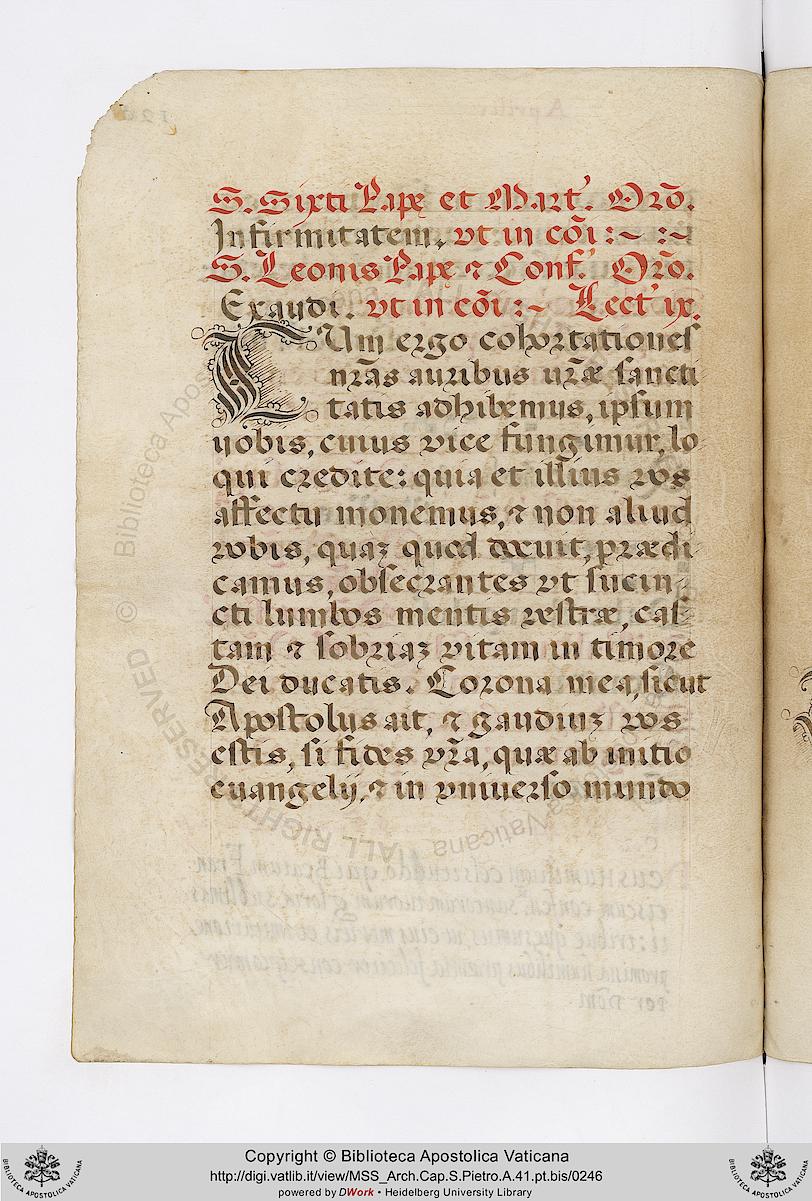 S. Sixti Papę et Mart'. Orõ.
Infirmitatem, vt in cõi :~ :~
S. Leonis Papę ⁊ Conf.' Orõ.
Exaudi. vt in cõi :~ Lect' ix.
Cum ergo cohortationes
nr̃as auribus ur̃æ sancti
tatis adhibemus, ipsum
uobis, cuius vice fungimur, lo
qui credite: quia et illius vos
affectu monemus, ⁊ non aliud
vobis, quaȝ quod docuit, prædi
camus, obsecrantes vt sucin-
cti lumbos mentis vestræ, cas
tam ⁊ sobriaȝ vitam in timore
Dei ducatis. Corona mea, sicut
Apostolus ait, ⁊ gaudiuȝ vos
estis, si fides vr̃a, quæ ab initio
euangelij, ⁊ in vniuerso mundo
Copyright © Biblioteca Apostolica Vaticana
http://digi.vatlib.it/view/MSS_Arch.Cap.S.Pietro.A.41.pt.bis/0246
powered by DWork • Heidelberg University Library